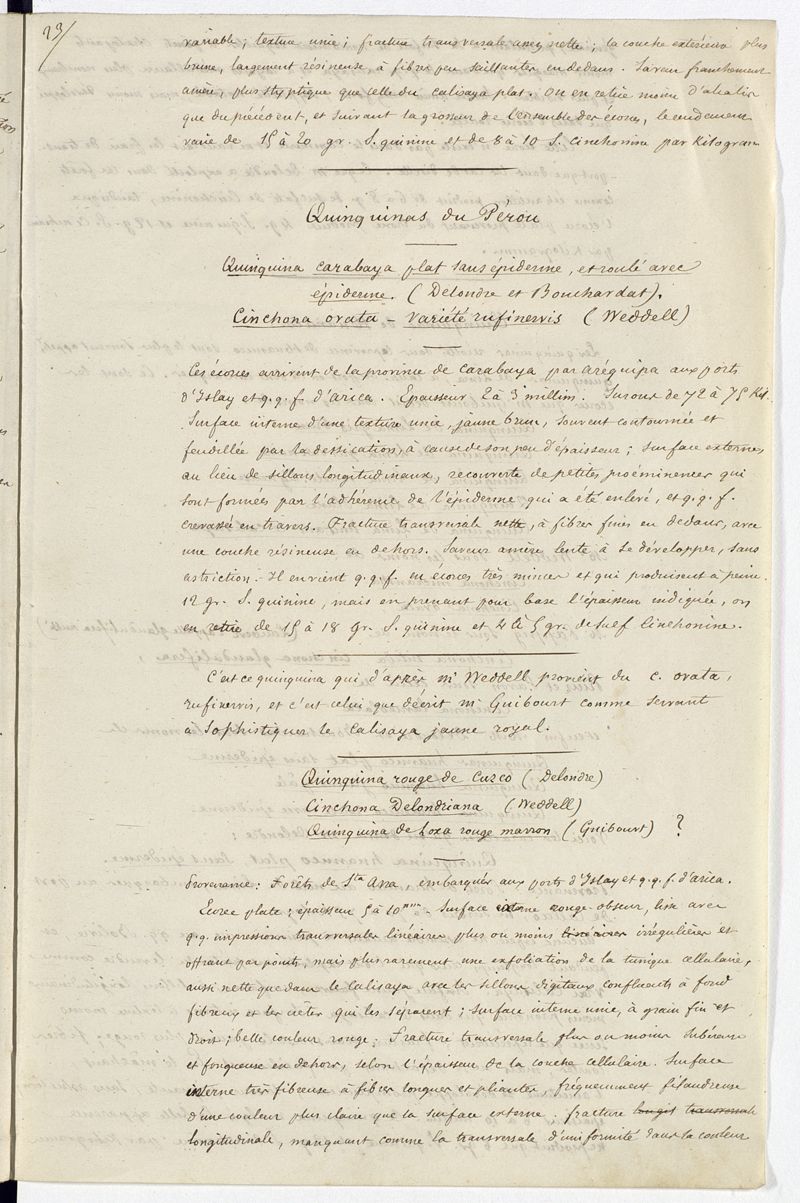 23/
variable; texture unie; fracture transversale assez nette; la couche extérieure plus
brune, largement résineuse, à fibres peu saillantes en dedans. Saveur franchement
amère, plus styptique que celle du calisaya plat. On en retire moins d'alcalis
que du précédent, et suivant la grosseur de l'ensemble des écorces, le rendement
varie de 15 à 20 gr. S. quinine et de 8 à 10 S. cinchonine par Kilogram
Quinquinas du Pérou
Quinquina carabaya plat sans épiderme, et roulé avec
épiderme. (Delondre et Bouchardat).
Cinchona ovata - variété rufinervis (Weddell)
Ces écorces arrivent de la province de carabaya par aréquipa aux ports
d'Islay et q. q. f. d'arica. Epaisseur 2 à 3 millim. Surons de 72 à 75 Kil.
Surface interne d'une texture unie, jaune brun, souvent contournée et
feudillée par la dessication, à cause de son peu d'épaisseur; surface externe,
au lieu de sillons longitudinaux, recouverte de petites proéminences qui
sont formées par l'adhérence de l'épiderme qui a été enlevé, et q. q. f.
crevassée en travers. Fracture transversale nette, à fibres fines en dedans, avec
une couche résineuse en dehors. Saveur amère lente à se développer, sans
astriction. Il en vient q. q. f. en écorces très minces et qui produisent à peine
12 gr. S. quinine, mais en prenant pour base l'épaisseur indiquée, on
en retire de 15 à 18 gr. S. quinine et 4 à 5 gr. de sulf cinchonine.
C'est ce quinquina qui d'après Mr Weddell provient du c. ovata,
rufinervis, et c'est celui que décrit Mr Guibourt comme servant
à sophistiquer le calisaya jaune royal.
Quinquina rouge de Cuzco (Delondre)
Cinchona Delondriana (Weddell)
Quinquina de Loxa rouge marron (Guibourt) ?
Provenance: Forêts de Sta Ana, embarqués aux ports d'Islay et q. q. f. d'arica.
Ecorce plate; épaisseur 5 à 10mm. Surface externe rouge obscur, lisse avec
q. q. impressions transversales linéaires plus ou moins linéaires irrégulières et
offrant par points, mais plus rarement une exfoliation de la tunique cellulaire,
aussi nette que dans le calisaya avec les sillons digitaux confluents à fond
fibreux et les crêtes qui les séparent; surface interne unie, à grain fin et
droit; belle couleur rouge; Fracture transversale plus ou moins subéreuse
et fongueuse en dehors, selon l'épaisseur de la couche cellulaire. Surface
interne très fibreuse à fibres longues et pliantes, fréquemment filandreuse
d'une couleur plus claire que la surface externe. fracture longit transversale
longitudinale, manquant comme la transversale d'uniformité dans la couleur